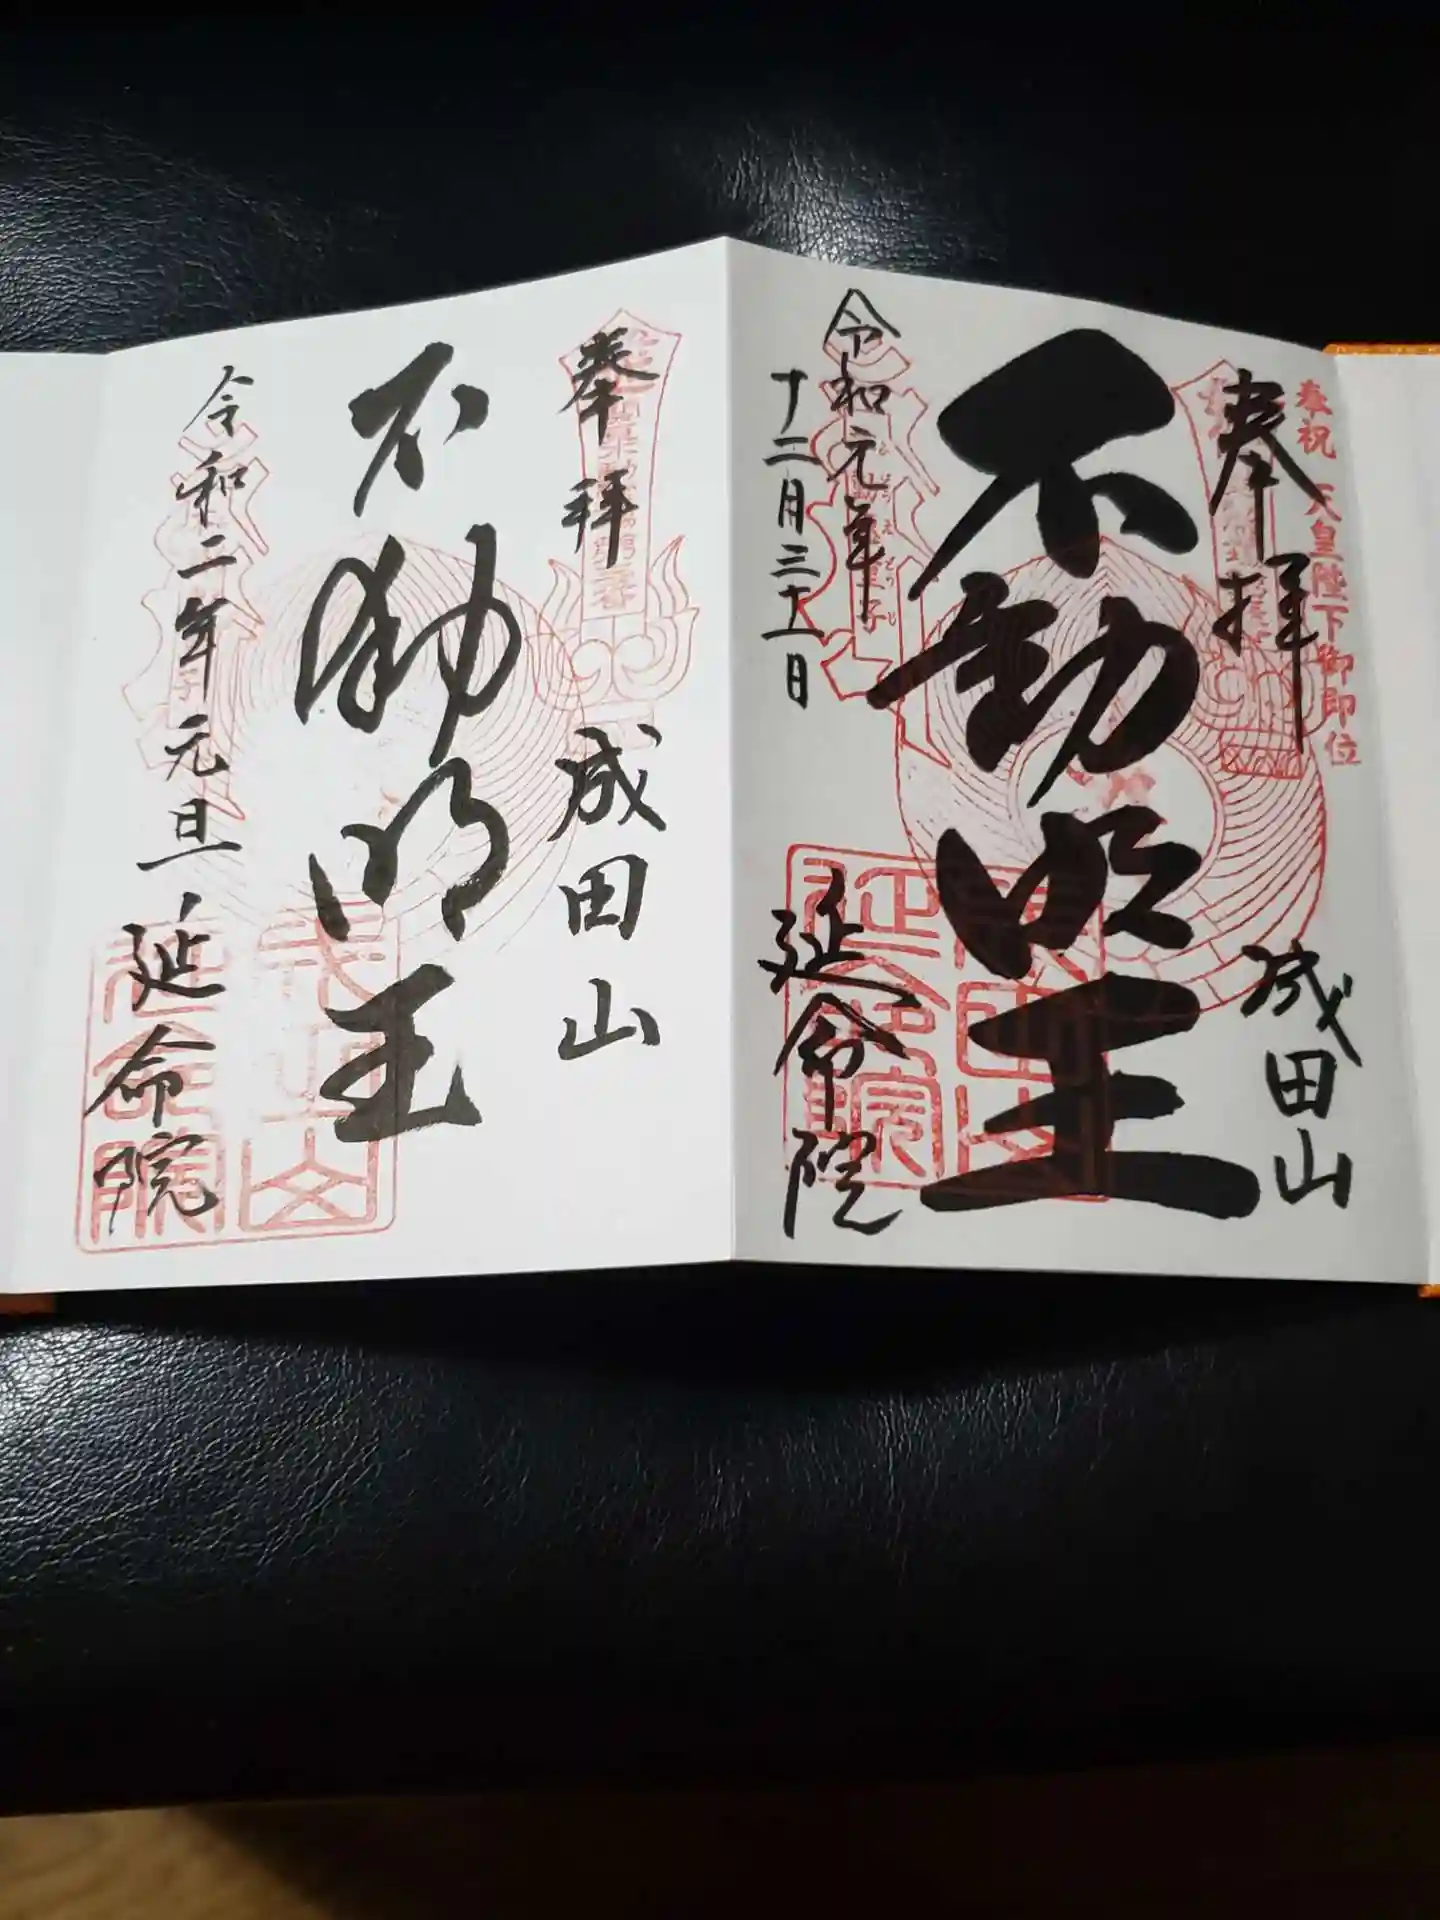 奉祝 天皇陛下御即位
奉拝
成田山
不動明王
令和元年
十二月三十一日
延命院
奉拝
成田山
不動明王
令和二年元旦
延命院